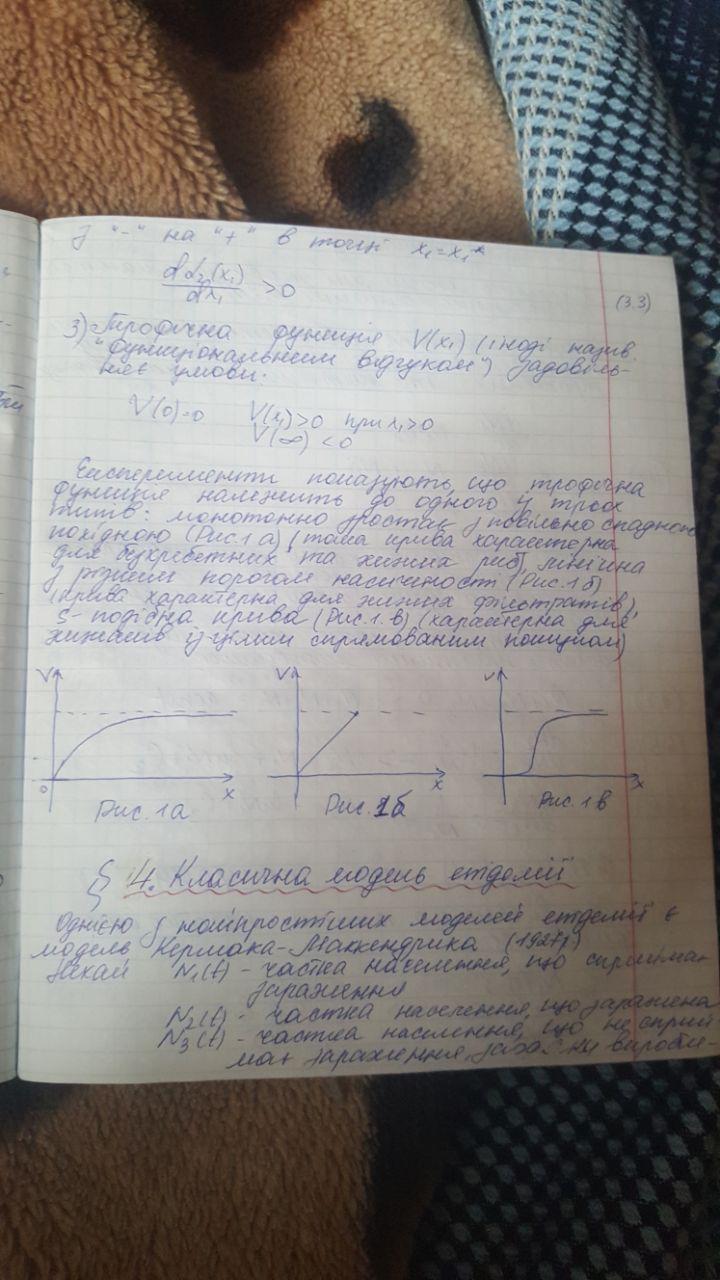 з "-" на "+" в точці x₁=x₁*
dα₂(x₁)/dx₁ >0 (3.3)
3) Трофічна функція V(x₁) (іноді назив.
"функціональним відгуком") задовіль-
няє умови:
V(0)=0 V(x₁)>0 при x₁>0
V(∞)<0
Експерименти показують, що трофічна
функція належить до одного з трьох
типів: монотонно зростає з повільно спадною
похідною (Рис.1 а) (така крива характерна
для безхребетних та хижих риб), лінійна
з різким порогом насиченості (Рис.1 б)
(крива характерна для хижих фільтратів),
S-подібна крива (Рис.1.в) (характерна для
хижаків із цілим спрямованим пошуком)
V V V
0 x x x
Рис. 1а Рис. 1б Рис. 1 в
§ 4. Класична модель епідемії
Однією з найпростіших моделей епідемії є
модель Кермака-Маккендрика (1927р)
Нехай N₁(t) - частка населення, що сприймає
зараження
N₂(t) - частка населення, що заражена
N₃(t) - частка населення, що не сприй-
має зараження,